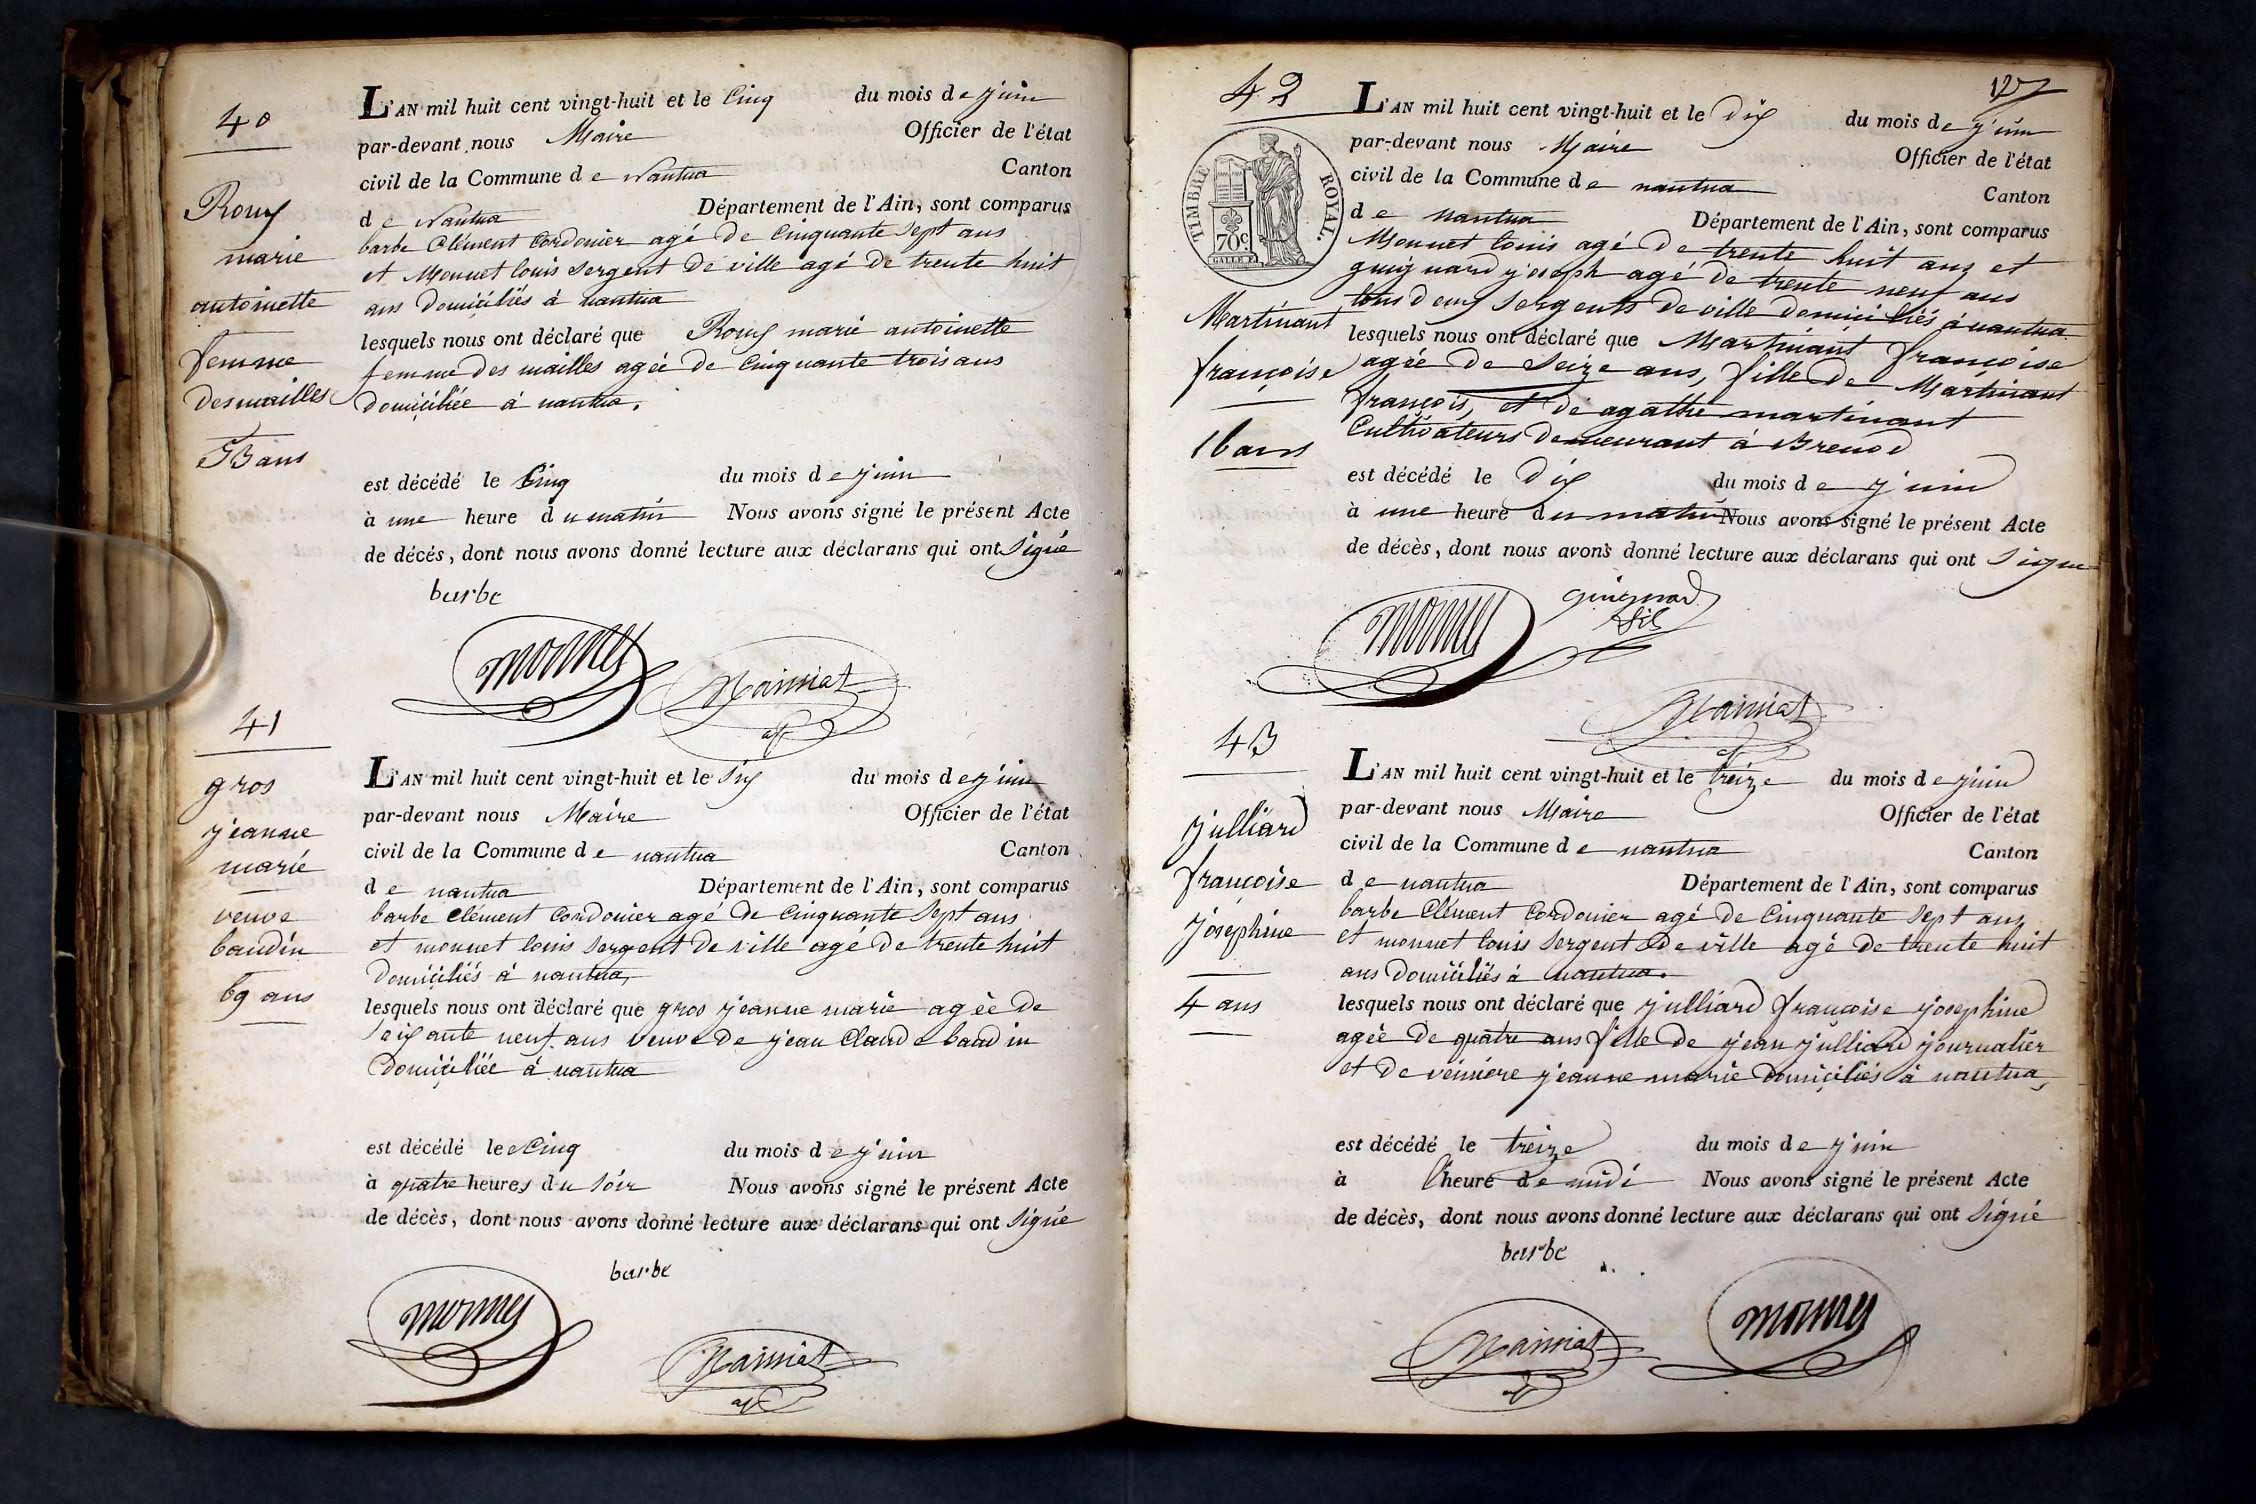 40
Roux
marie
antoinette
femme
desmailles
53 ans
L'AN mil huit cent vingt-huit et le Cinq du mois de juin
par-devant nous Maire Officier de l'état
civil de la Commune de Nantua Canton
de Nantua Département de l'Ain, sont comparus
barbe Clément Cordonier agé de Cinquante Sept ans
et Monnet louis Sergent de ville agé de trente huit
ans Domiciliés à nantua
lesquels nous ont déclaré que Roux marie antoinette
femme des mailles agée de Cinquante trois ans
Domiciliée à nantua.
est décédé le Cinq du mois de juin
à une heure du matin Nous avons signé le présent Acte
de décés, dont nous avons donné lecture aux déclarans qui ont Signé
barbe
monnet
41
gros
jeanne
marie
veuve
baudin
69 ans
L'AN mil huit cent vingt-huit et le Six du mois de juin
par-devant nous Maire Officier de l'état
civil de la Commune de nantua Canton
de nantua Département de l'Ain, sont comparus
barbe Clément Cordonier agé de Cinquante Sept ans
et monnet louis Sergent de ville agé de trente huit
Domiciliés à nantua,
lesquels nous ont déclaré que gros jeanne marie agée de
Soixante neuf ans veuve de jean Claude baudin
Domiciliée à nantua
est décédé le Cinq du mois de juin
à quatre heures du Soir Nous avons signé le présent Acte
de décès, dont nous avons donné lecture aux déclarans qui ont Signé
barbe
monnet
127
42
TIMBRE ROYAL.
70c.
Martinant
françoise
16 ans
L'AN mil huit cent vingt-huit et le Dix du mois de juin
par-devant nous Maire Officier de l'état
civil de la Commune de nantua Canton
de nantua Département de l'Ain, sont comparus
Monnet louis agé de trente huit ans et
guignard joseph agé de trente neuf ans
tous deux Sergents de ville Domiciliés à nantua
lesquels nous ont déclaré que Martinant françoise
agée de Seize ans, fille de Martinant
françois, et de agathe martinant
Cultivateurs Demeurant à Brenod
est décédé le Dix du mois de juin
à une heure du matin Nous avons signé le présent Acte
de décès, dont nous avons donné lecture aux déclarans qui ont Signé
monnet
guignard
fils
43
julliard
françoise
josephine
4 ans
L'AN mil huit cent vingt-huit et le treize du mois de juin
par-devant nous Maire Officier de l'état
civil de la Commune de nantua Canton
de nantua Département de l'Ain, sont comparus
barbe Clément Cordonier agé de Cinquante Sept ans
et monnet louis Sergent de ville agé de trente huit
ans Domiciliés à nantua.
lesquels nous ont déclaré que julliard françoise josephine
agée de quatre ans fille de jean julliard journalier
et de jeanne marie Domiciliés à nantua,
est décédé le treize du mois de juin
à l'heure de midi Nous avons signé le présent Acte
de décès, dont nous avons donné lecture aux déclarans qui ont Signé
barbe
monnet